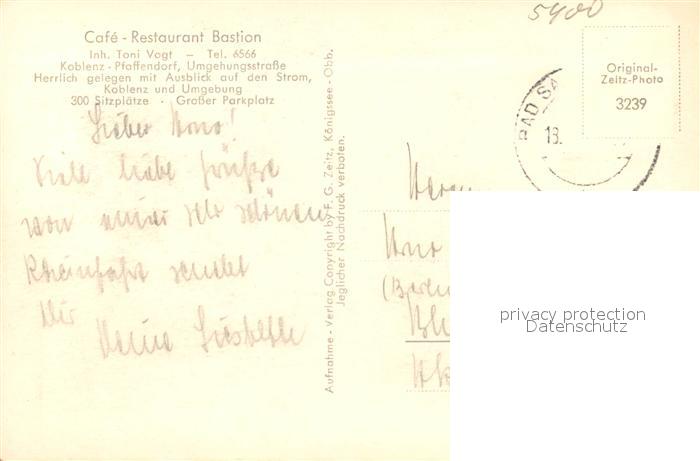 5400
Café - Restaurant Bastion
Inh. Toni Vogt — Tel. 6566
Koblenz - Pfaffendorf, Umgehungsstraße
Herrlich gelegen mit Ausblick auf den Strom,
Koblenz und Umgebung
300 Sitzplätze · Großer Parkplatz
Lieber Arno!
Viele liebe Grüße
von einer sehr schönen
Rheinfahrt sendet
Dir
Deine Liesbeth
Aufnahme - Verlag Copyright by F. G. Zeitz, Königssee - Obb.
Jeglicher Nachdruck verboten.
BAD SA
18.
Original-
Zeitz-Photo
3239
Herrn
Arno
privacy protection
Datenschutz